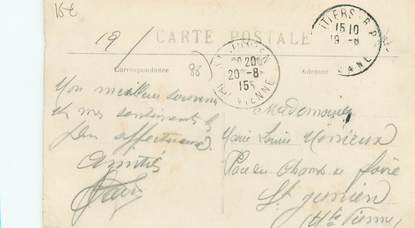 15€
19 /
CARTE POSTALE
Correspondance
86
Adresse
20 20
20 - 8
15
VIENNE
ITIERS - R.P.
15 10
19 - 8
Mon meilleur souvenir
et mes sentiments les
plus affectueux
Amitiés
Mademoiselle
Marie Louise
Champ de foire
St Junien
(Hte Vienne)